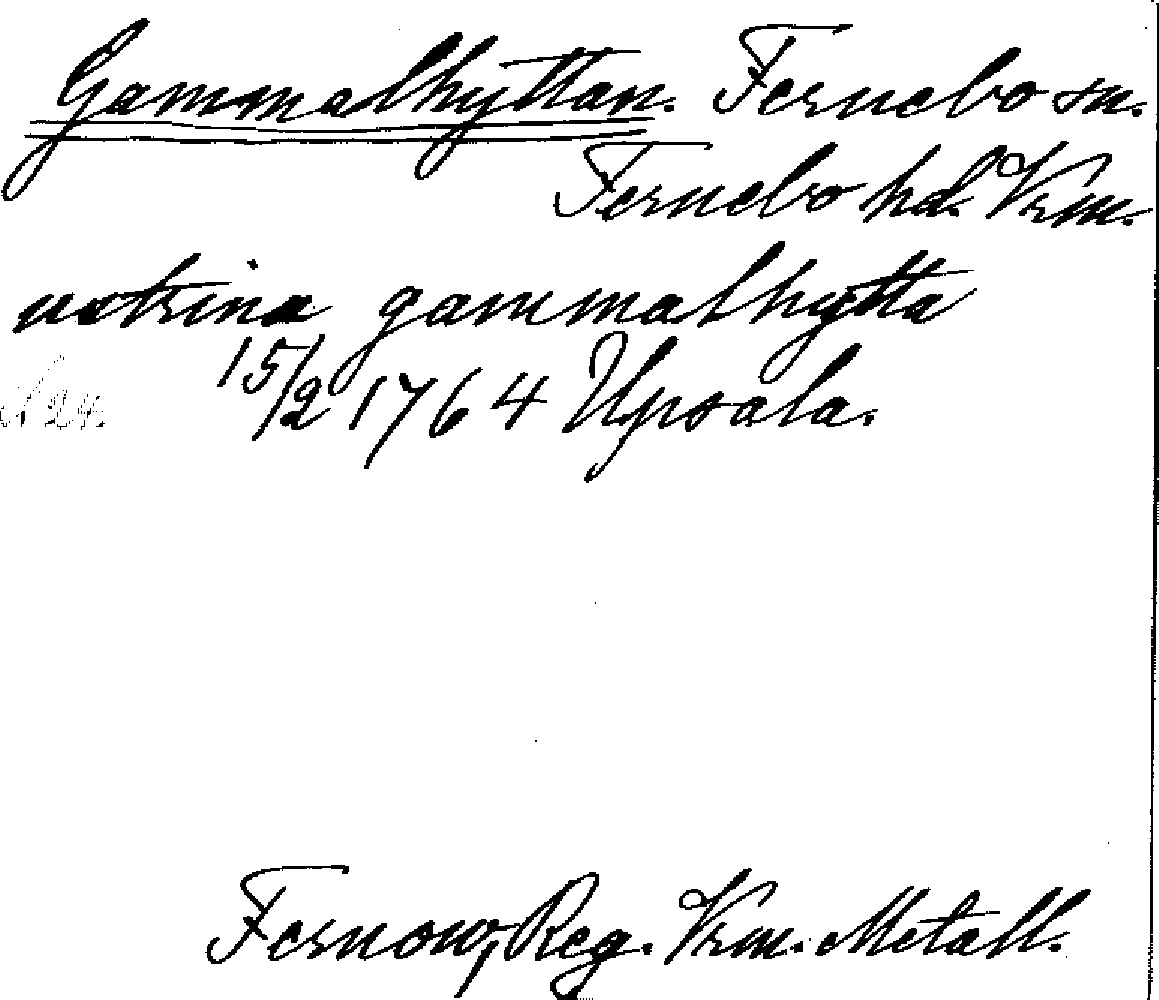 Gammalhyttan. Fernebo sn.
Fernebo hd. Vrm.
ustrina gammalhytta
15/2 1764 Upsala.
Fernow, Reg. Vrm. Metall.